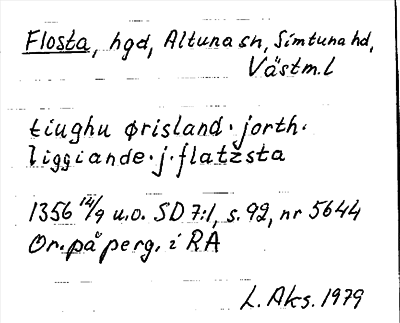 Flosta, hgd, Altuna sn, Simtuna hd,
Västm.l
tiughu ørisland · jorth ·
liggiande · j · flatzsta
1356 14/9 u.o. SD 7:1, s. 92, nr 5644
Or. på perg. i RA
L. Aks. 1979